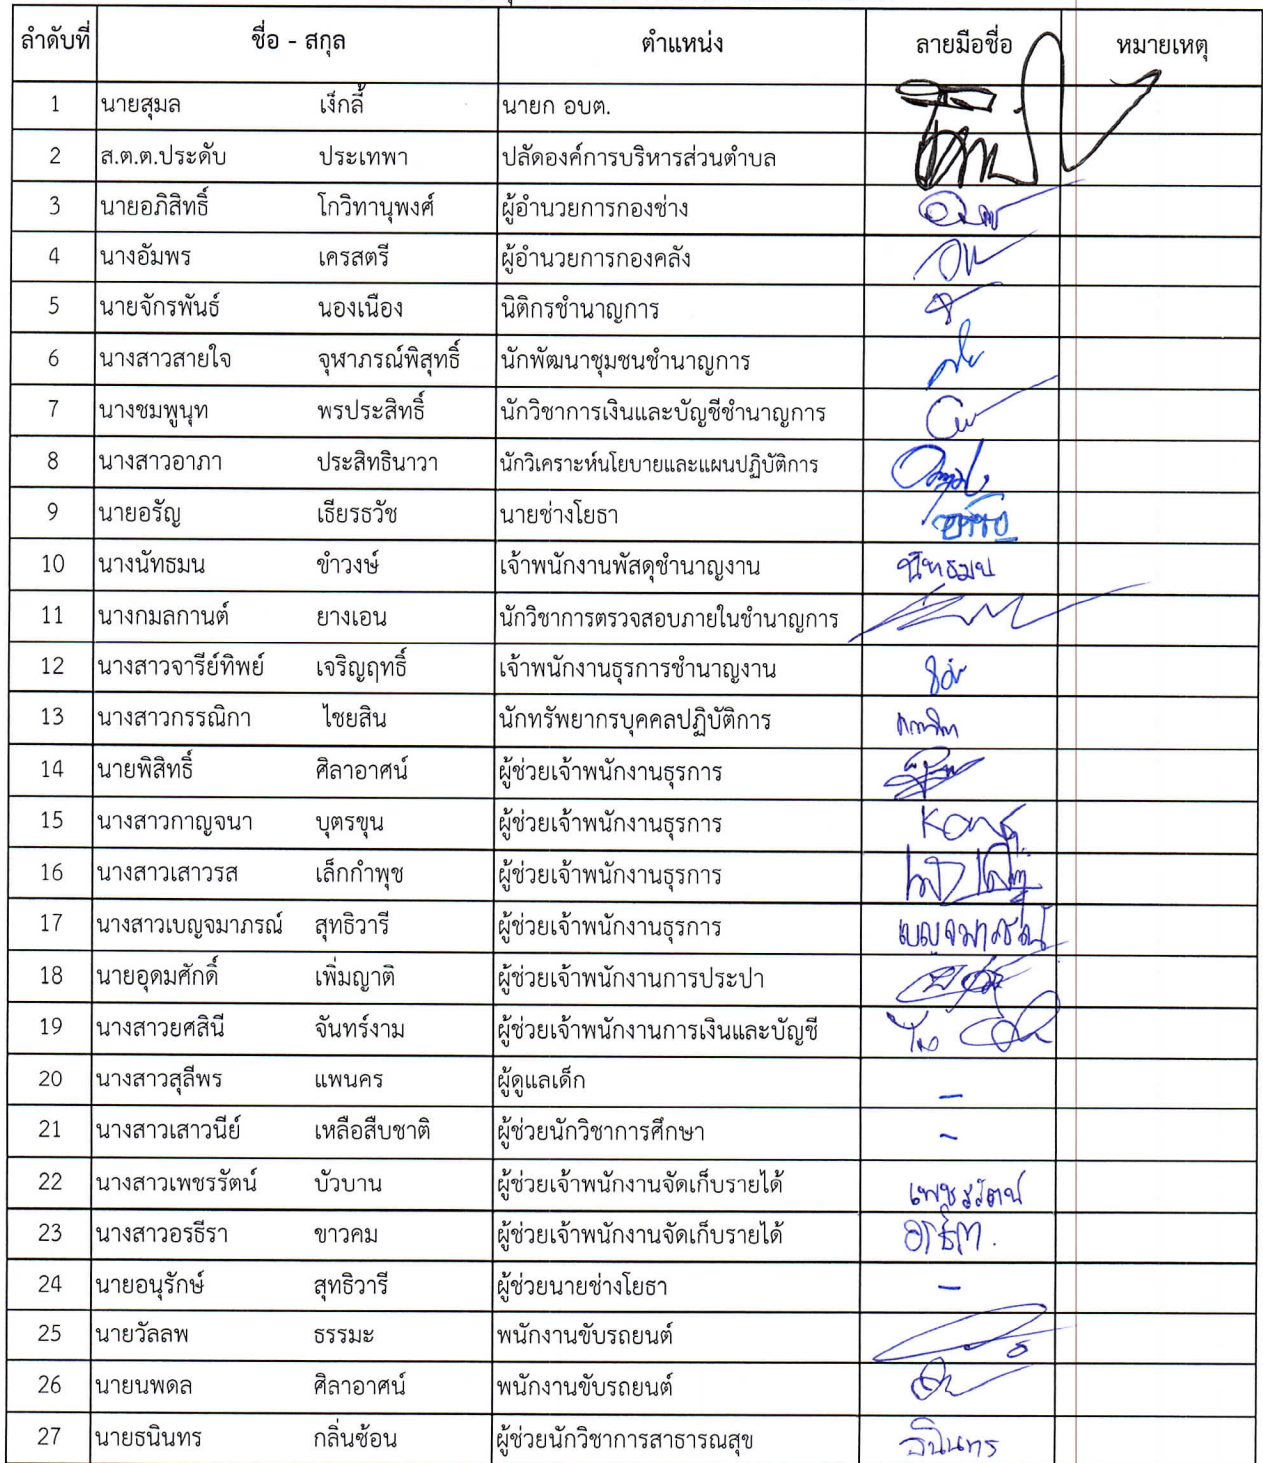 ลำดับที่ ชื่อ - สกุล ตำแหน่ง ลายมือชื่อ หมายเหตุ
1 นายสุมล เง็กลี้ นายก อบต.
2 ส.ต.ต.ประดับ ประเทพา ปลัดองค์การบริหารส่วนตำบล
3 นายอภิสิทธิ์ โกวิทานุพงศ์ ผู้อำนวยการกองช่าง
4 นางอัมพร เครสตรี ผู้อำนวยการกองคลัง
5 นายจักรพันธ์ นองเนือง นิติกรชำนาญการ
6 นางสาวสายใจ จุฬาภรณ์พิสุทธิ์ นักพัฒนาชุมชนชำนาญการ
7 นางชมพูนุท พรประสิทธิ์ นักวิชาการเงินและบัญชีชำนาญการ
8 นางสาวอาภา ประสิทธินาวา นักวิเคราะห์นโยบายและแผนปฏิบัติการ
9 นายอรัญ เธียรธวัช นายช่างโยธา
10 นางนัทธมน ขำวงษ์ เจ้าพนักงานพัสดุชำนาญงาน นัทธมน
11 นางกมลกานต์ ยางเอน นักวิชาการตรวจสอบภายในชำนาญการ
12 นางสาวจารีย์ทิพย์ เจริญฤทธิ์ เจ้าพนักงานธุรการชำนาญงาน
13 นางสาวกรรณิกา ไชยสิน นักทรัพยากรบุคคลปฏิบัติการ
14 นายพิสิทธิ์ ศิลาอาศน์ ผู้ช่วยเจ้าพนักงานธุรการ
15 นางสาวกาญจนา บุตรขุน ผู้ช่วยเจ้าพนักงานธุรการ
16 นางสาวเสาวรส เล็กกำพุช ผู้ช่วยเจ้าพนักงานธุรการ
17 นางสาวเบญจมาภรณ์ สุทธิวารี ผู้ช่วยเจ้าพนักงานธุรการ เบญจมาภรณ์
18 นายอุดมศักดิ์ เพิ่มญาติ ผู้ช่วยเจ้าพนักงานการประปา
19 นางสาวยศสินี จันทร์งาม ผู้ช่วยเจ้าพนักงานการเงินและบัญชี
20 นางสาวสุลีพร แพนคร ผู้ดูแลเด็ก -
21 นางสาวเสาวนีย์ เหลือสืบชาติ ผู้ช่วยนักวิชาการศึกษา -
22 นางสาวเพชรรัตน์ บัวบาน ผู้ช่วยเจ้าพนักงานจัดเก็บรายได้ เพชรรัตน์
23 นางสาวอรธีรา ขาวคม ผู้ช่วยเจ้าพนักงานจัดเก็บรายได้
24 นายอนุรักษ์ สุทธิวารี ผู้ช่วยนายช่างโยธา -
25 นายวัลลพ ธรรมะ พนักงานขับรถยนต์
26 นายนพดล ศิลาอาศน์ พนักงานขับรถยนต์
27 นายธนินทร กลิ่นซ้อน ผู้ช่วยนักวิชาการสาธารณสุข ธนินทร